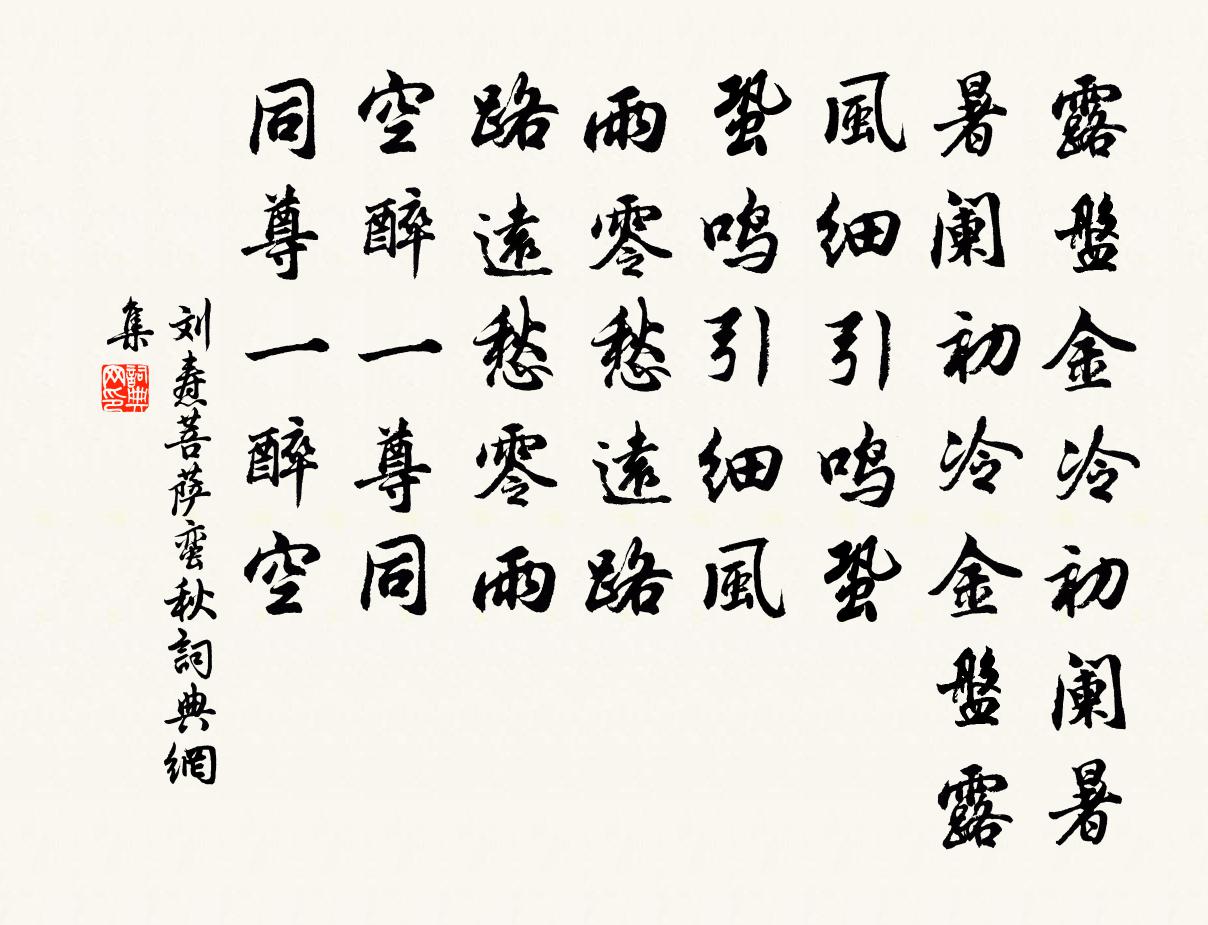 露盤金冷初阑暑
暑阑初冷金盤露
風细引鸣蛩
蛩鸣引细風
雨零愁遠路
路遠愁零雨
空醉一尊同
同尊一醉空
刘焘菩萨蛮秋詞典網
集
詞典网印